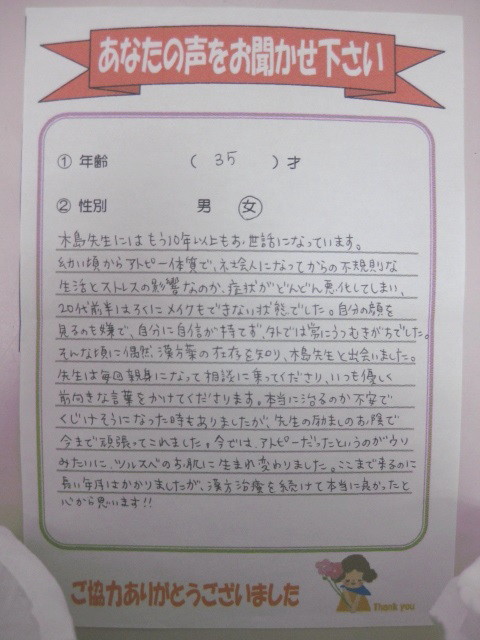 あなたの声をお聞かせ下さい
① 年齢 ( 35 ) 才
② 性別 男 女
木島先生にはもう10年以上もお世話になっています。
幼い頃からアトピー体質で、社会人になってからの不規則な
生活とストレスの影響なのか、症状がどんどん悪化してしまい、
20代前半はろくにメイクもできない状態でした。自分の顔を
見るのも嫌で、自分に自信が持てず、外では常にうつむきがちでした。
そんな頃に偶然、漢方薬の存在を知り、木島先生と出会いました。
先生は毎回親身になって相談に乗ってくださり、いつも優しく
前向きな言葉をかけてくださります。本当に治るのか不安で
くじけそうになった時もありましたが、先生の励ましのお陰で
今まで頑張ってこれました。今では、アトピーだったというのがウソ
みたいに、ツルスベのお肌に生まれ変わりました。ここまで来るのに
長い年月はかかりましたが、漢方治療を続けて本当に良かったと
心から思います!!
ご協力ありがとうございました
Thank you